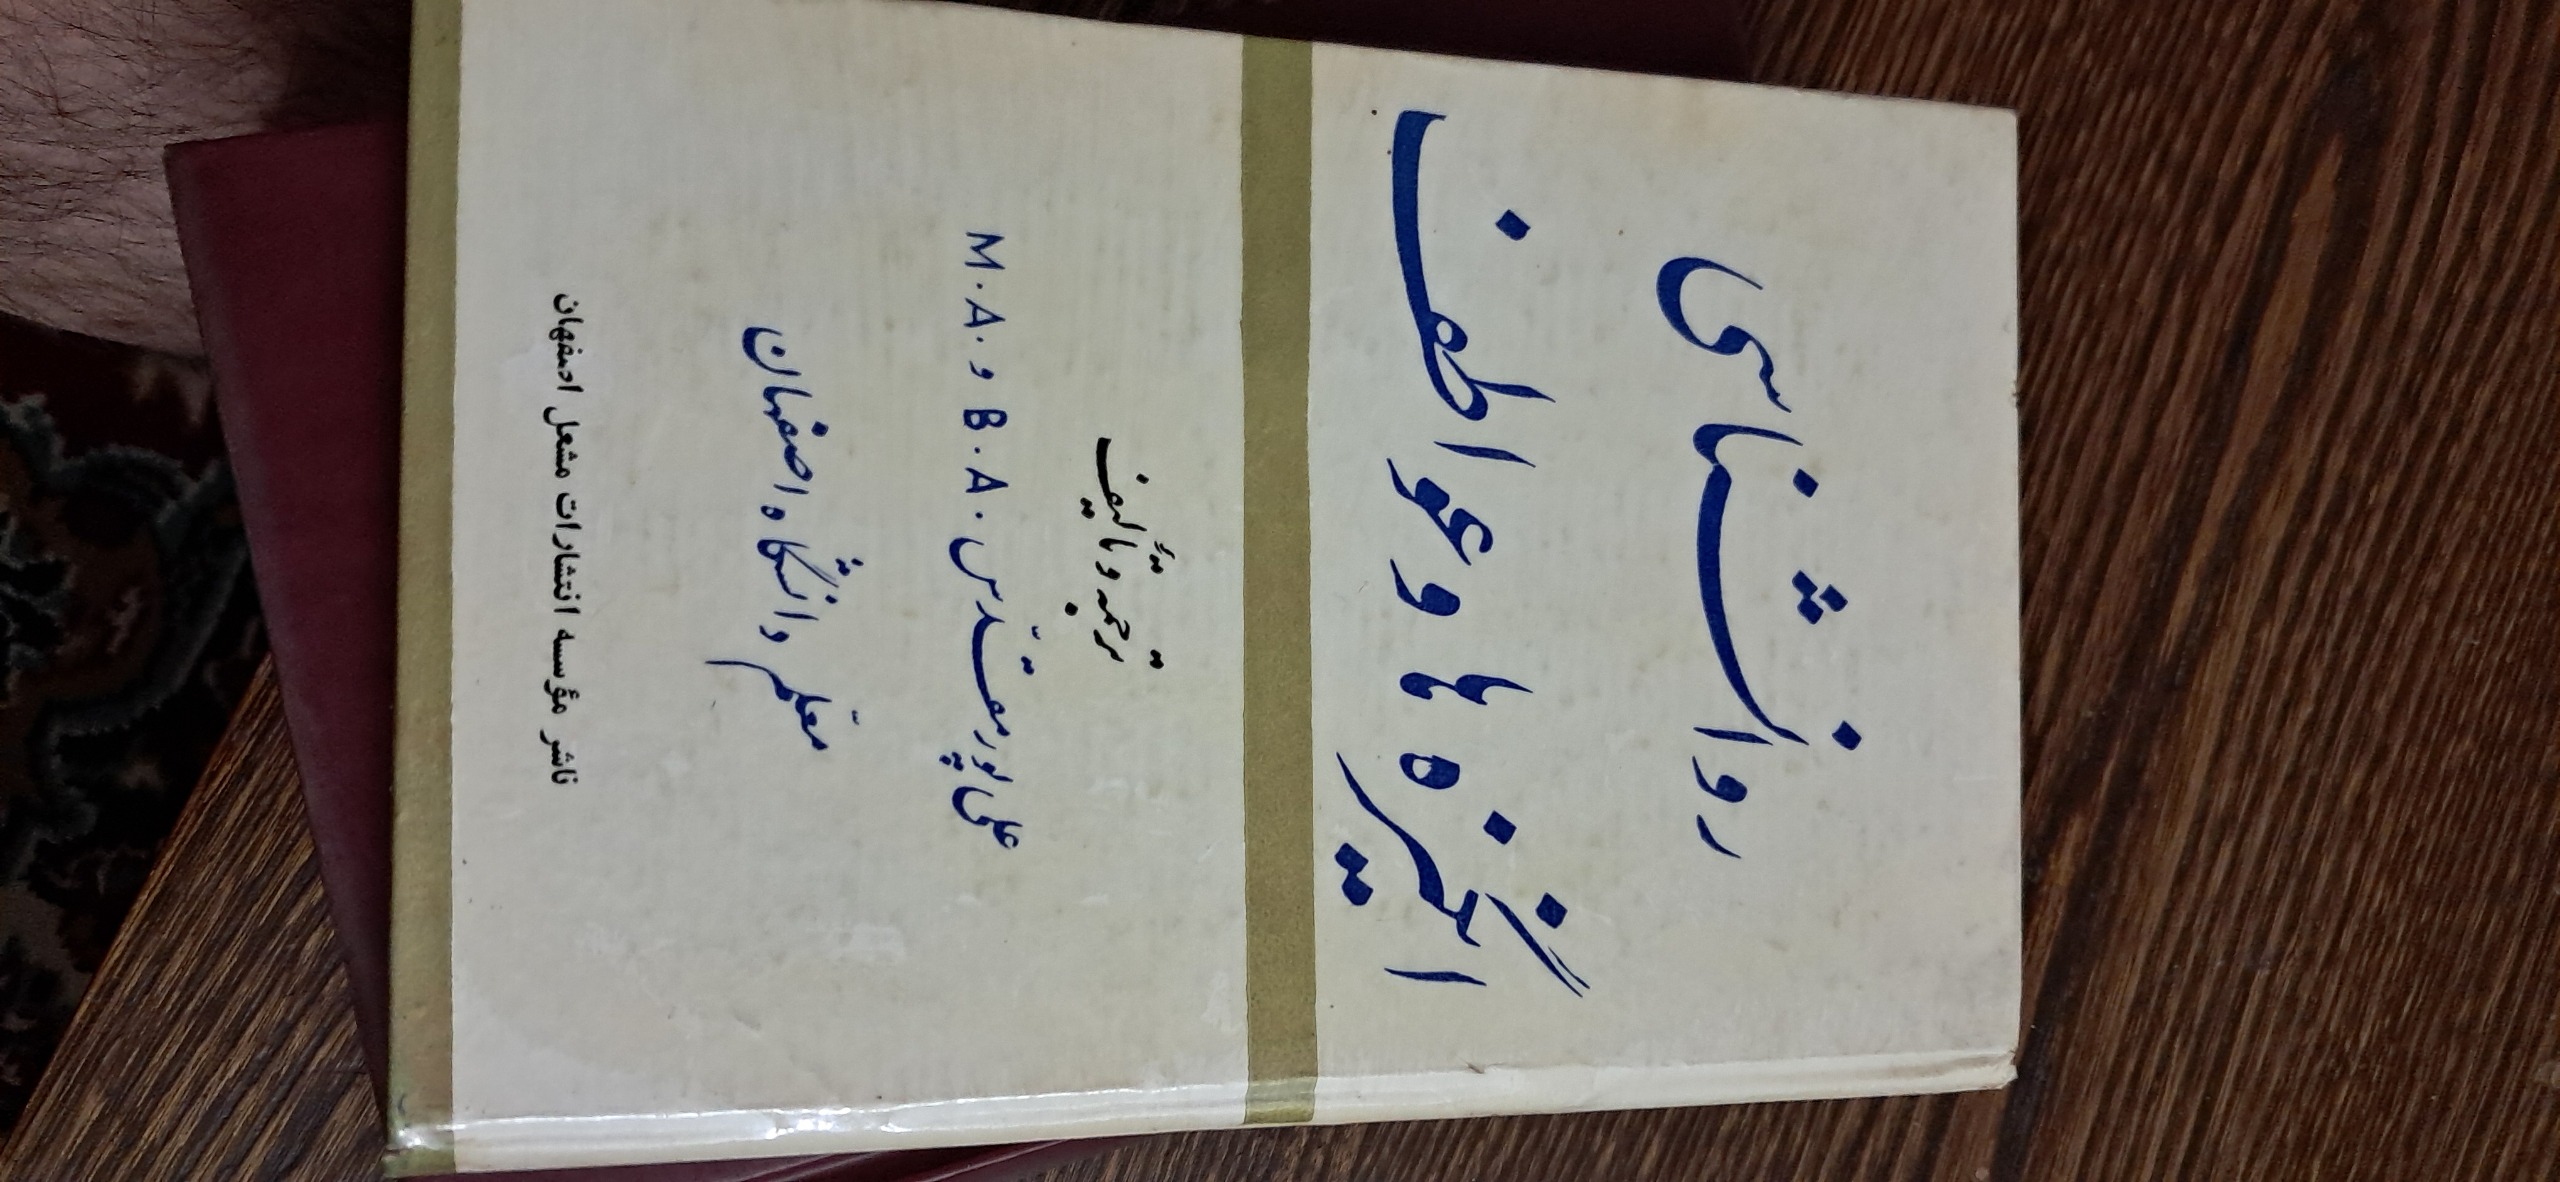 روانشناسی
انگیزه ها و عواطف
ترجمه و تألیف
علی پورمقدّس .B.A و .M.A
معلّم دانشگاه اصفهان
ناشر مؤسسه انتشارات مشعل اصفهان